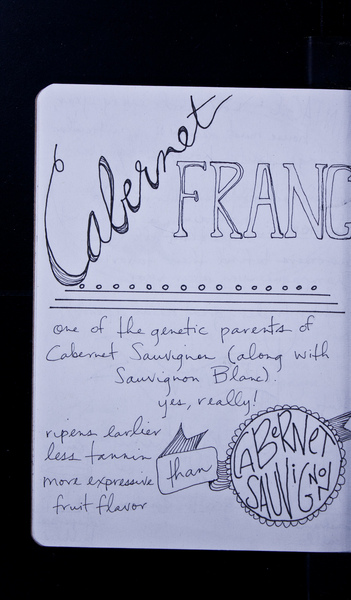 Cabernet
FRANC
one of the genetic parents of
Cabernet Sauvignon (along with
Sauvignon Blanc).
yes, really!
ripens earlier
less tannin
more expressive
fruit flavor
than
CABERNET
SAUVIGNON